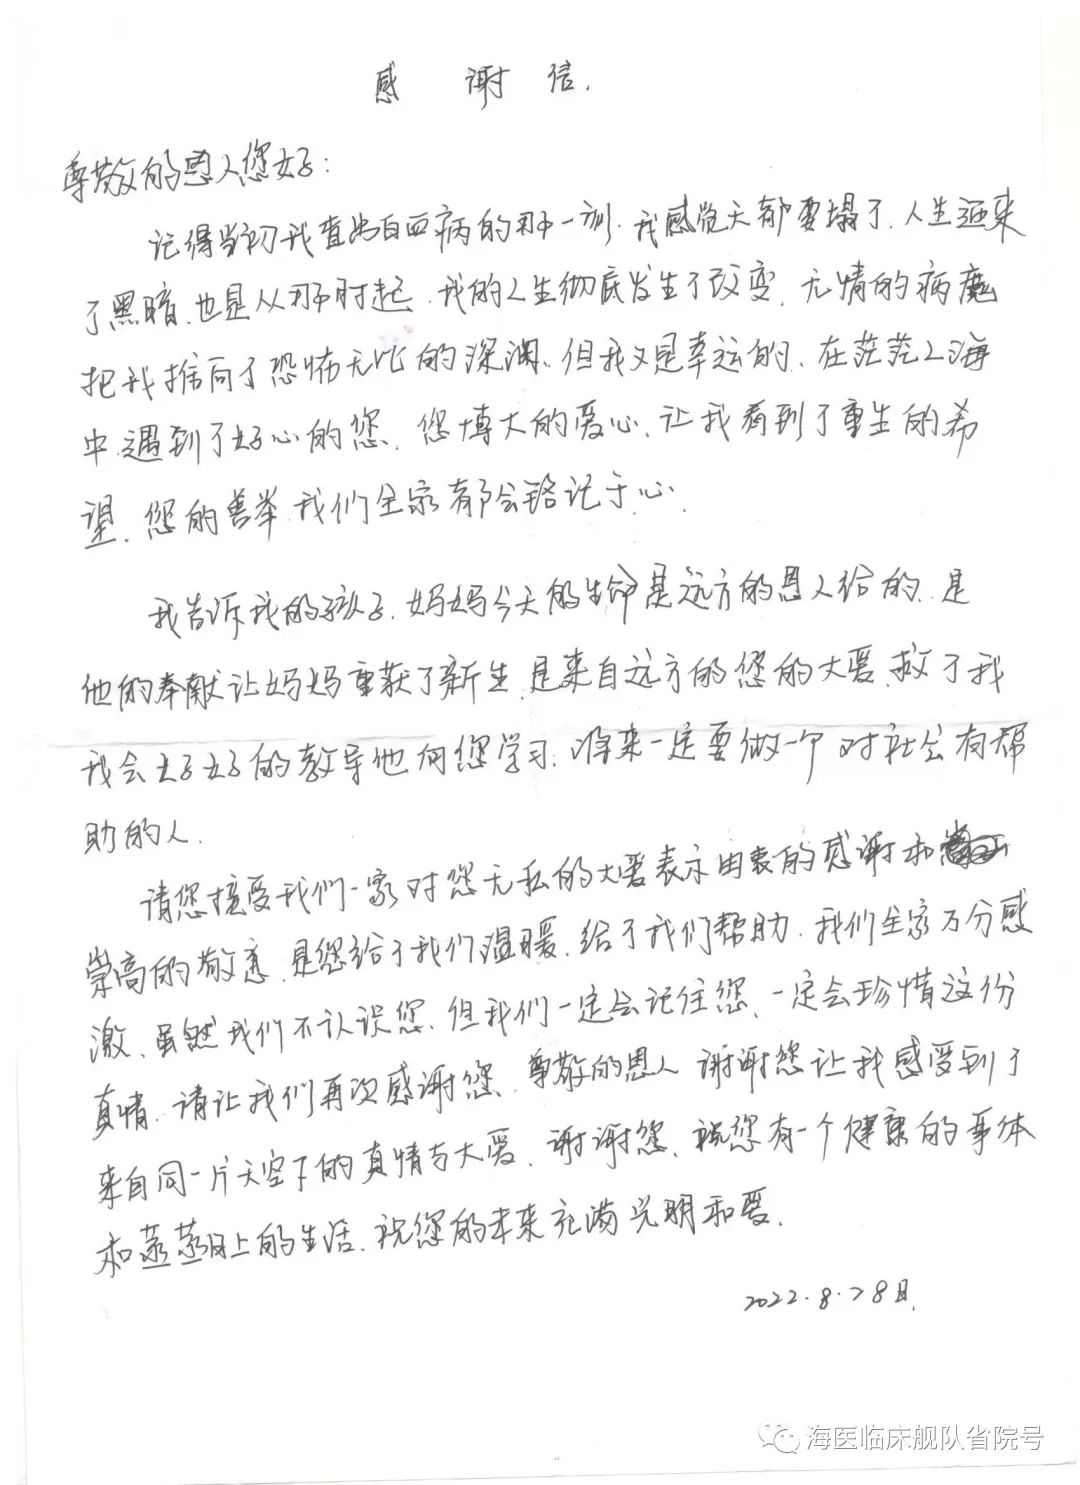 感 谢 信.
尊敬的恩人您好:
记得当初我查出白血病的那一刻.我感觉天都要塌了.人生迎来
了黑暗.也是从那时起.我的人生彻底发生了改变.无情的病魔
把我推向了恐怖无比的深渊.但我又是幸运的.在茫茫人海
中.遇到了好心的您.您博大的爱心.让我看到了重生的希
望.您的善举.我们全家都会铭记于心.
我告诉我的孩子.妈妈今天的生命是远方的恩人给的.是
他的奉献让妈妈重获了新生.是来自远方的您的大爱.救了我
我会好好的教导他向您学习.将来一定要做一个对社会有帮
助的人.
请您接受我们一家对您无私的大爱表示由衷的感谢和
崇高的敬意.是您给了我们温暖.给了我们帮助.我们全家万分感
激.虽然我们不认识您.但我们一定会记住您.一定会珍惜这份
真情.请让我们再次感谢您.尊敬的恩人 谢谢您让我感受到了
来自同一片天空下的真情与大爱.谢谢您.祝您有一个健康的身体
和蒸蒸日上的生活.祝您的未来充满光明和爱.
2022.8.28日.
海医临床舰队省院号